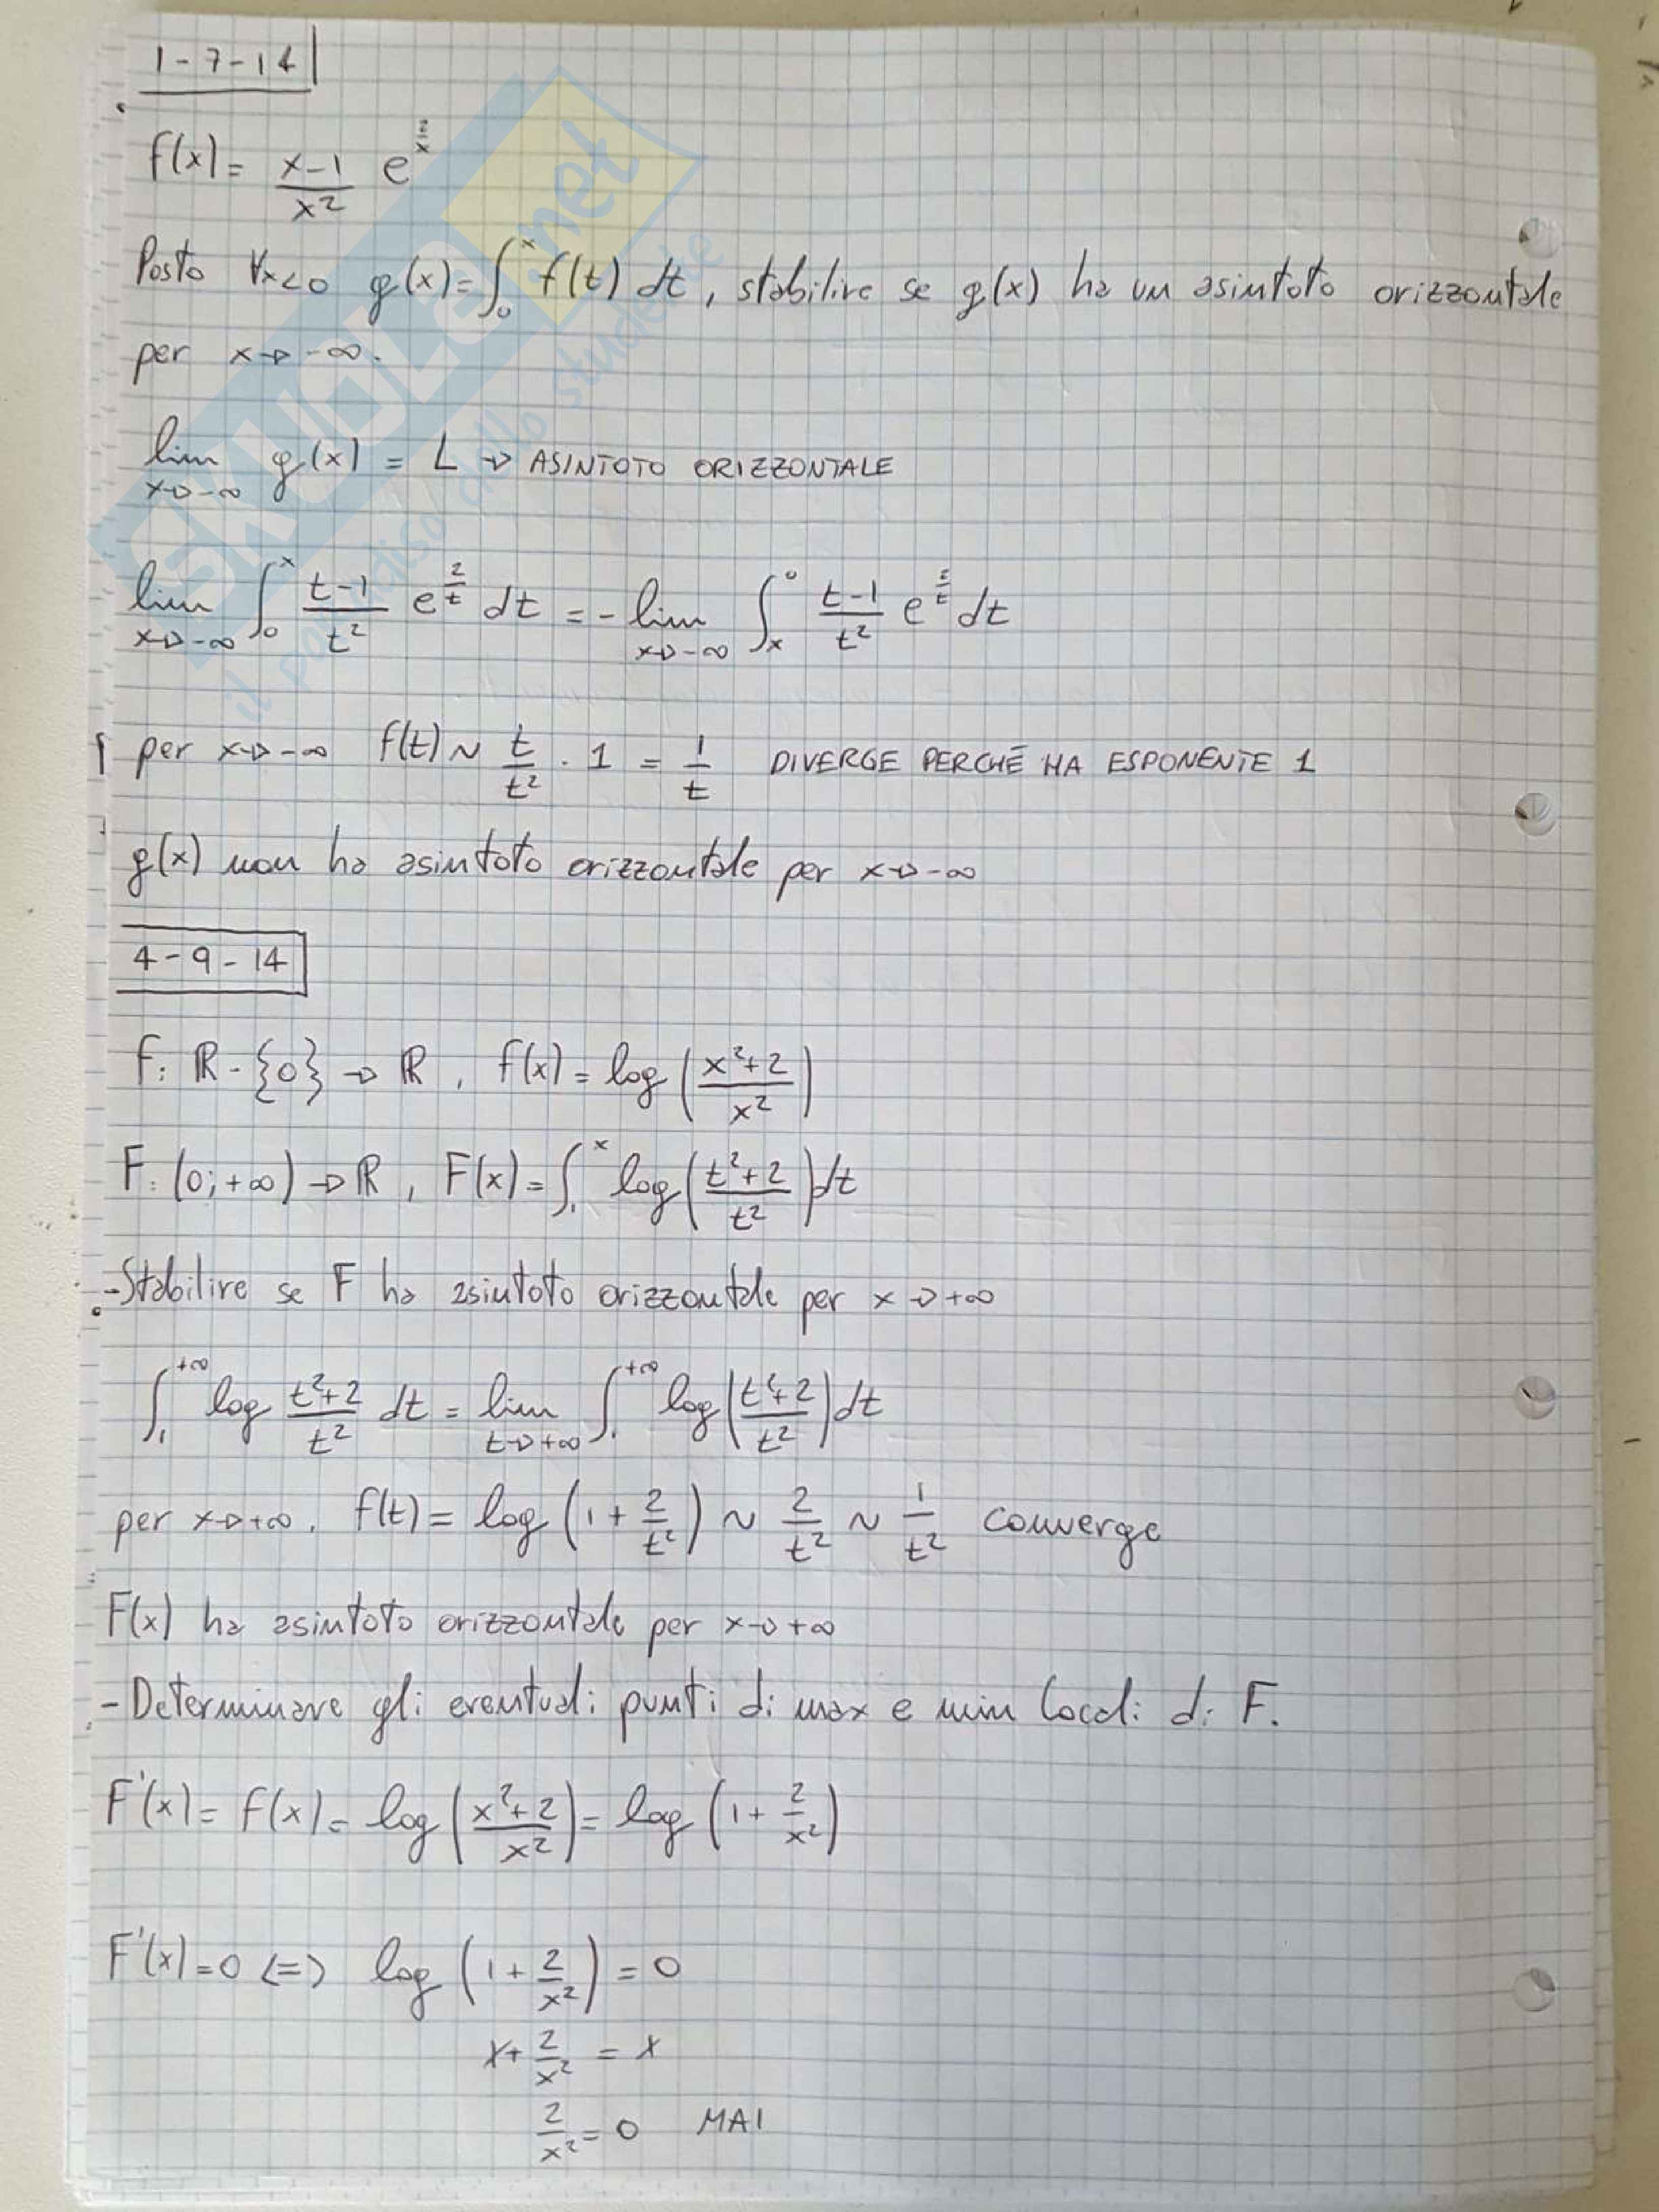 1-7-14
f(x) = \frac{x-1}{x^2} e^{\frac{2}{x}}
Posto ∀x<0 g(x) = ∫_0^x f(t) dt, stabilire se g(x) ha un asintoto orizzontale
per x→-∞.
lim_{x→-∞} g(x) = L → ASINTOTO ORIZZONTALE
lim_{x→-∞} ∫_0^x \frac{t-1}{t^2} e^{\frac{2}{t}} dt = - lim_{x→-∞} ∫_x^0 \frac{t-1}{t^2} e^{\frac{2}{t}} dt
per x→-∞ f(t) ~ \frac{t}{t^2} · 1 = \frac{1}{t} DIVERGE PERCHÉ HA ESPONENTE 1
g(x) non ha asintoto orizzontale per x→-∞
4-9-14
f: ℝ-{0} → ℝ, f(x) = log(\frac{x^2+2}{x^2})
F: (0;+∞) → ℝ, F(x) = ∫_1^x log(\frac{t^2+2}{t^2}) dt
- Stabilire se F ha asintoto orizzontale per x→+∞
∫_1^{+∞} log \frac{t^2+2}{t^2} dt = lim_{t→+∞} ∫_1^{+∞} log(\frac{t^2+2}{t^2}) dt
per x→+∞. f(t) = log(1+\frac{2}{t^2}) ~ \frac{2}{t^2} ~ \frac{1}{t^2} converge
F(x) ha asintoto orizzontale per x→+∞
- Determinare gli eventuali punti di max e min locali di F.
F'(x) = f(x) = log(\frac{x^2+2}{x^2}) = log(1+\frac{2}{x^2})
F'(x)=0 <=> log(1+\frac{2}{x^2}) = 0
1+\frac{2}{x^2} = 1
\frac{2}{x^2} = 0 MAI
SKUOLA.net
il paradiso dello studente